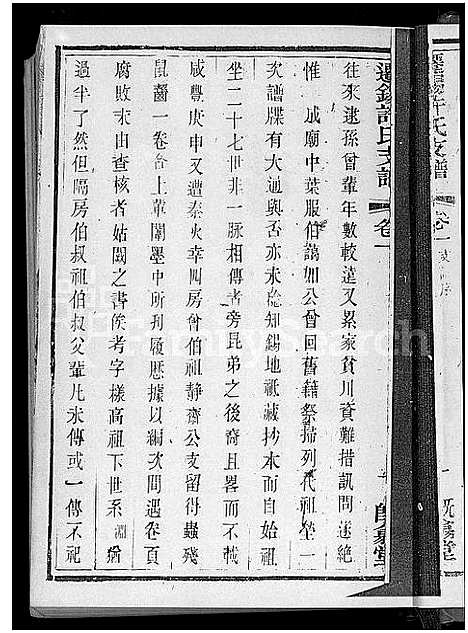 往來逮孫曾輩年數較遠又累家貧川資難措訊問遂絕
惟 成廟中葉服伯議如公曾回舊籍祭掃列代祖塋一
次譜牒有大通與否亦未能知錫地祇藏抄本而自始祖
坐二十七世非一脉相傳者旁昆弟之後裔且畧而不載
咸豐庚申又遭秦火幸四房曾伯祖靜齋公支留得蟲殘
鼠齧一卷合上輩闈墨中所刊履歷據以編次間遇卷頁
腐敗末由查核者姑闕之書俟考字樣高祖下世系 淵 猶
過半了然但隔房伯叔祖伯叔父輩凡未傳或一傳不祀
遷錫許氏支譜
卷一